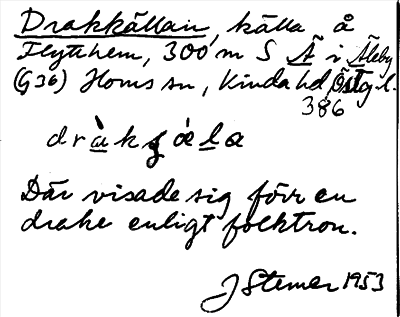 Drakkällan, källa å
Flytthem, 300 m S Ä i Äleby
(G36) Horns sn, Kinda hd, Östg. l.
386
dràkɟǽla
Där visade sig förr en
drake enligt folktron.
J Stemer 1953